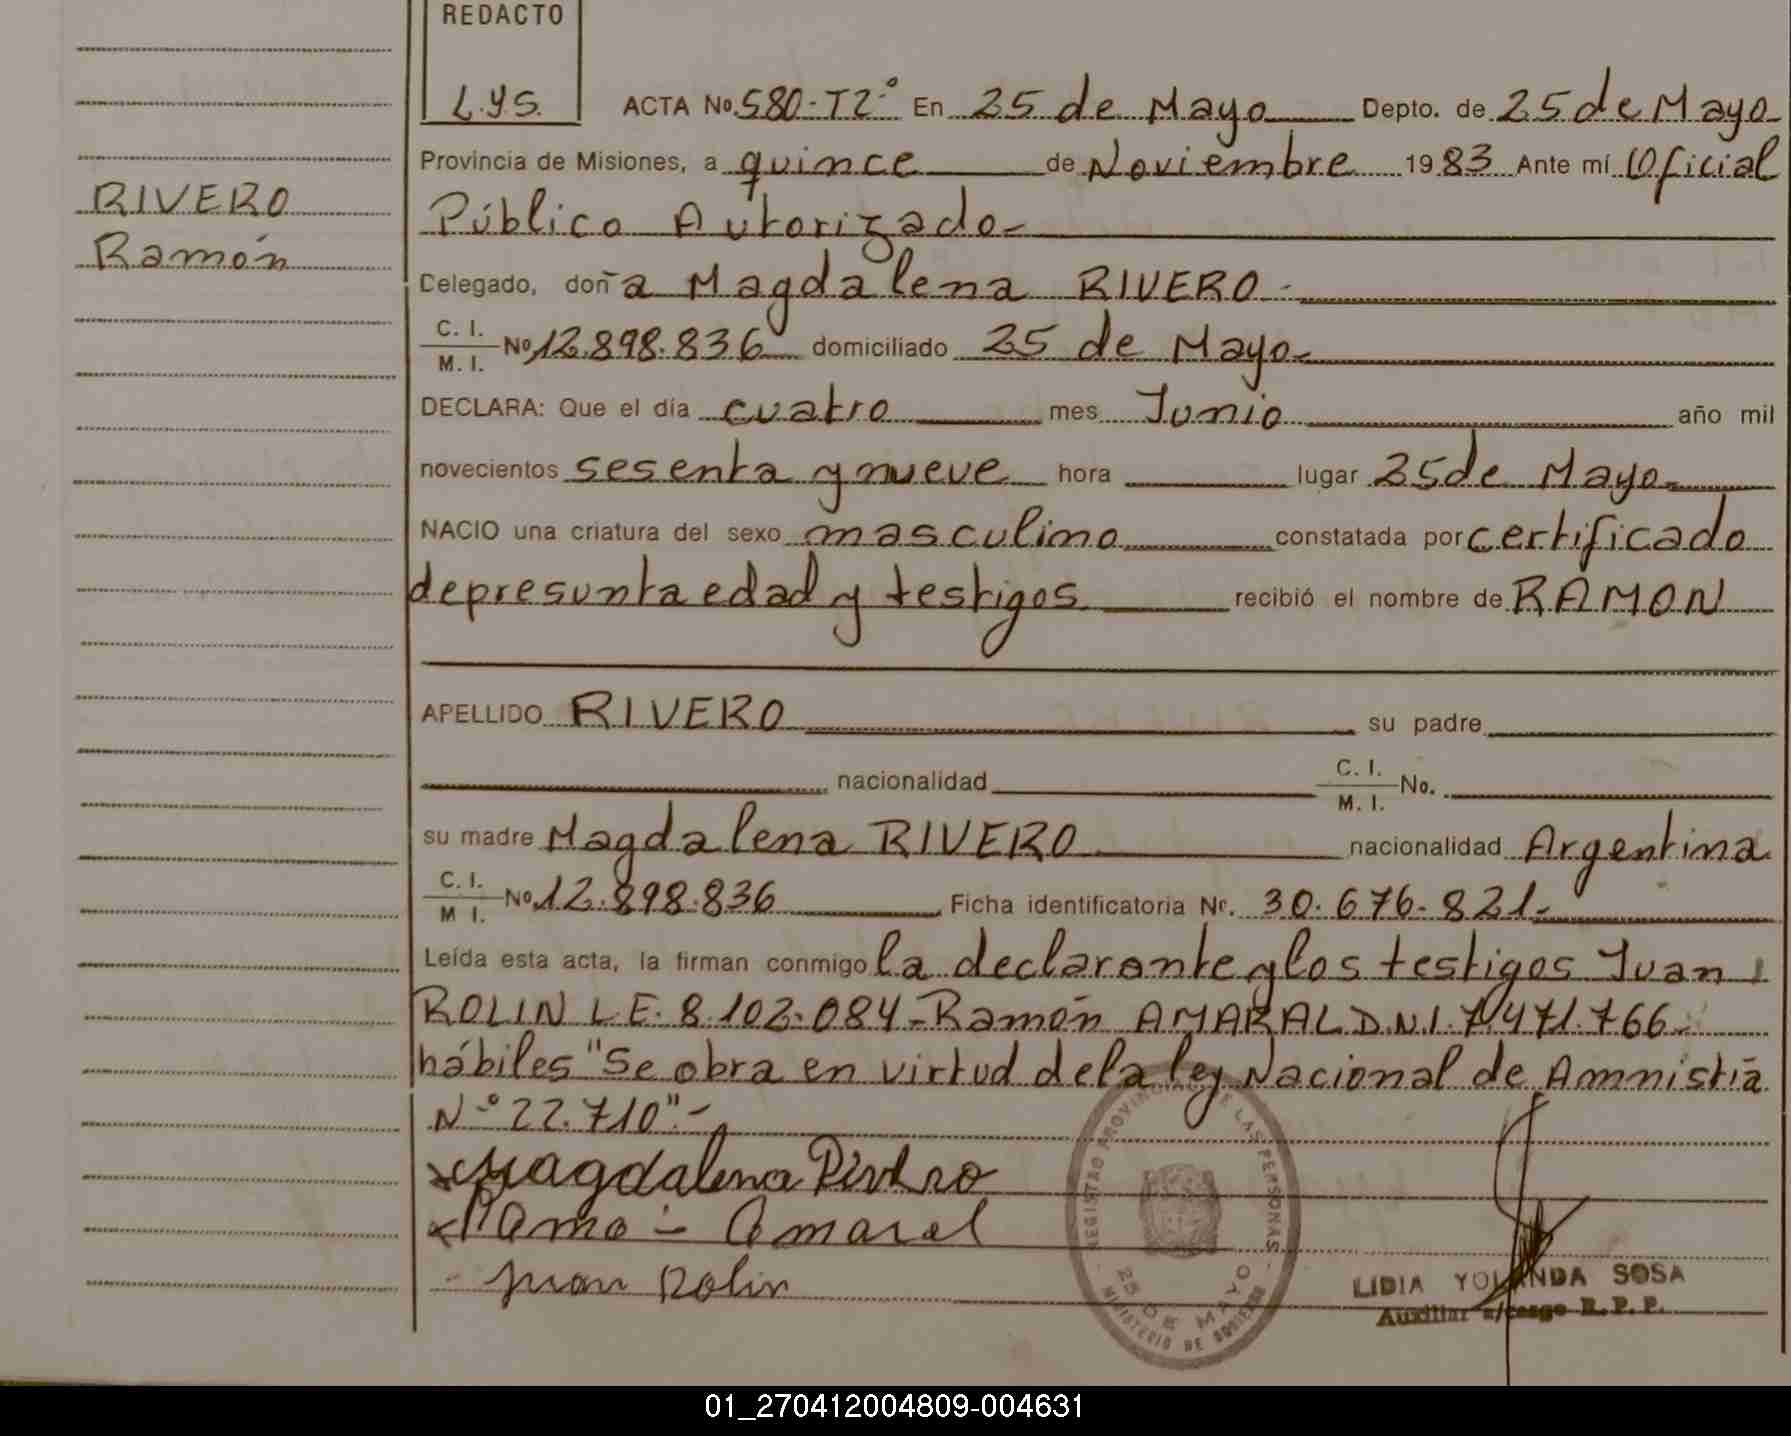 REDACTO
L.Y.S.
ACTA No. 580-T2° En 25 de Mayo Depto. de 25 de Mayo
Provincia de Misiones, a quince de Noviembre 1983 Ante mí Oficial
RIVERO
Público Autorizado
Ramón
Celegado, doña Magdalena RIVERO
C. I. / M. I. No 12.898.836 domiciliado 25 de Mayo
DECLARA: Que el día cuatro mes Junio año mil
novecientos sesenta y nueve hora lugar 25 de Mayo
NACIO una criatura del sexo masculino constatada por certificado
de presunta edad y testigos recibió el nombre de RAMON
APELLIDO RIVERO su padre
nacionalidad C. I. / M. I. No.
su madre Magdalena RIVERO nacionalidad Argentina
C. I. / M I. No. 12.898.836 Ficha identificatoria No. 30.676.821-
Leída esta acta, la firman conmigo la declarante y los testigos Juan
ROLIN L.E. 8.102.084-Ramón AMARAL D.N.I. 7.471.766
hábiles "Se obra en virtud de la ley Nacional de Amnistía
N° 22.710".-
Magdalena Rivero
Ramo - Amaral
Juan Rolin
REGISTRO PROVINCIAL DE LAS PERSONAS
25 DE MAYO
MINISTERIO DE GOBIERNO
LIDIA YOLANDA SOSA
Auxiliar a/cargo R. P. P.
01_270412004809-004631